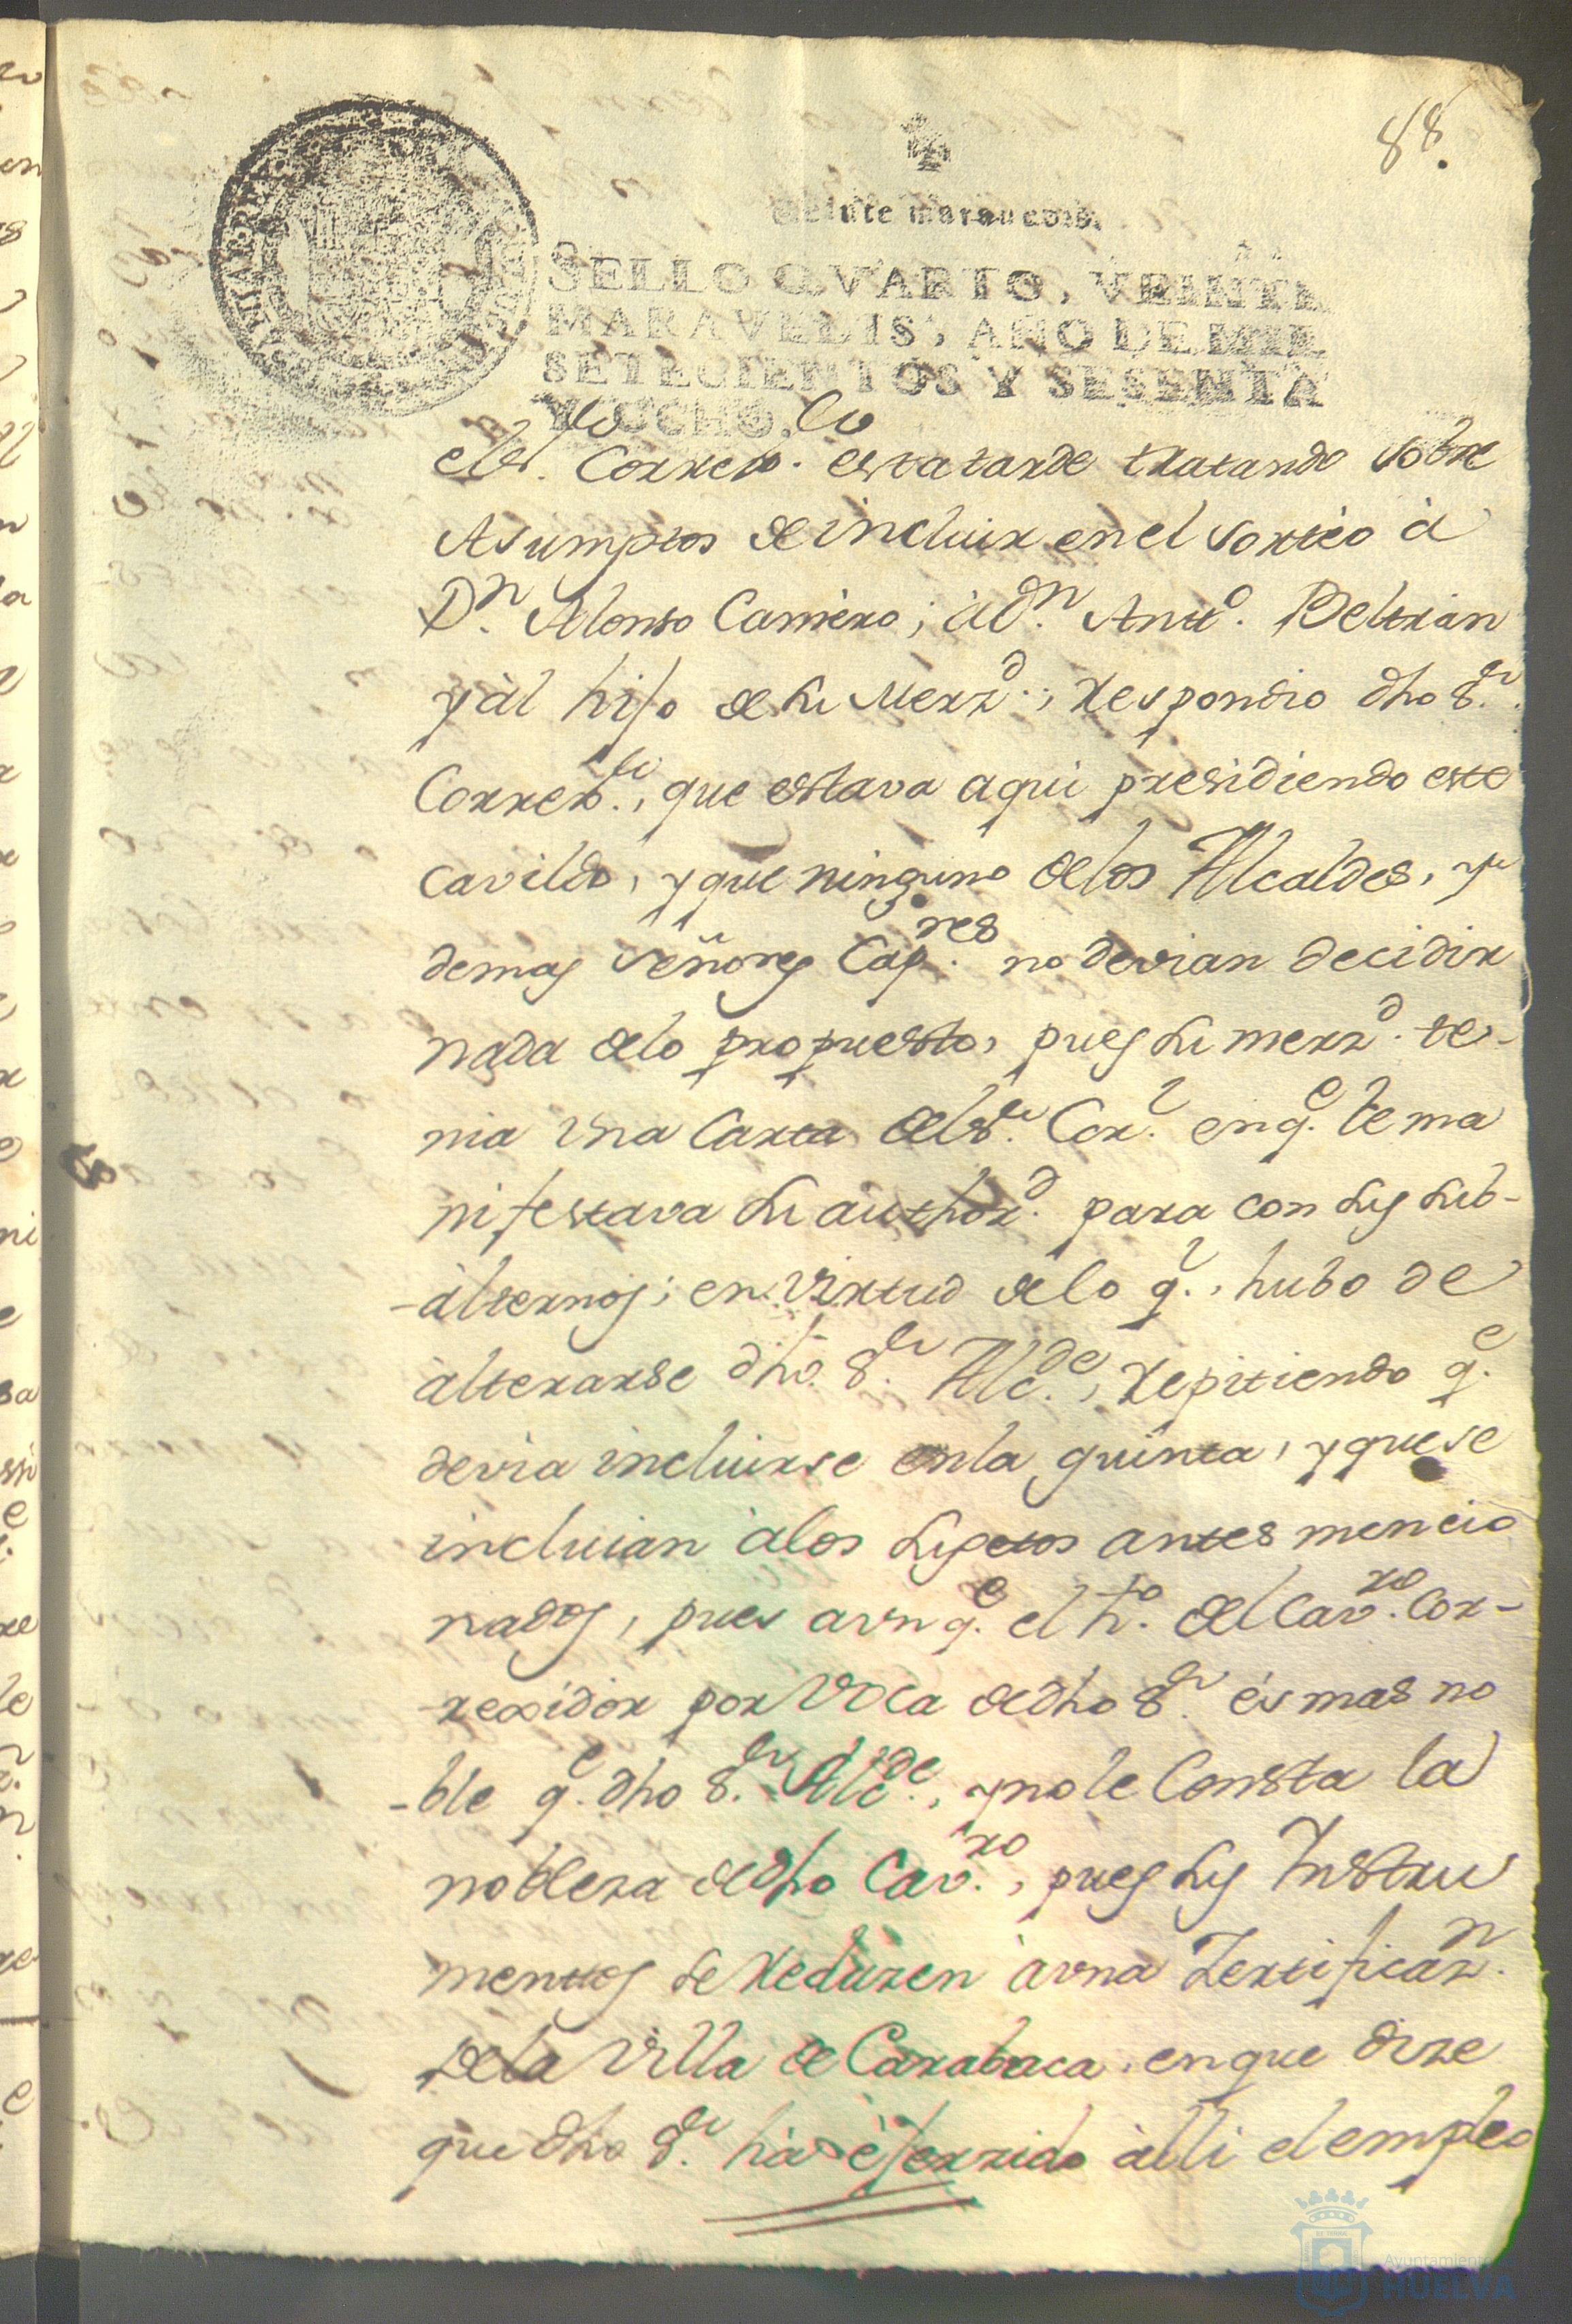 88.
Veinte maravedis.
SELLO QVARTO, VEINTE
MARAVEDIS, AÑO DE MIL
SETECIENTOS Y SESENTA
Y OCHO.
el S.or Correx.or esta tarde tratando sobre
Asumptos de incluir en el sorteo à
D.n Alonso Camiero, à d.n Ant.o Beltran
y àl hijo de su Merz.d; respondio dho S.or
Correx.or, que estava aqui presidiendo este
cavildo, y que ninguno de los Alcaldes, y
demas señores Cap.res no devian decidir
nada de lo propuesto, pues su merz.d te-
nia vna Carta del S.or Cor.l en q.e le ma
nifestava su author.d para con sus sub-
-àlternos; en virtud de lo q.l, hubo de
àlterarse dho. S.or Alc.de, repitiendo q.e
devia incluirse en la quinta, y que se
incluian à los sugetos antes mencio
nados, pues avnq.e el h.o del Cav.ro Cor-
-rexidor por voca de dho S.or és mas no
-ble q.e dho S.or Alc.de, y no le Consta la
nobleza de dho Cav.ro, pues sus Instru
mentos se reduzen à vna Zertificaz.n
de la Villa de Carabaca en que dize
que dho S.or hà ejerzido àlli el empleo
Ayuntamiento
HUELVA